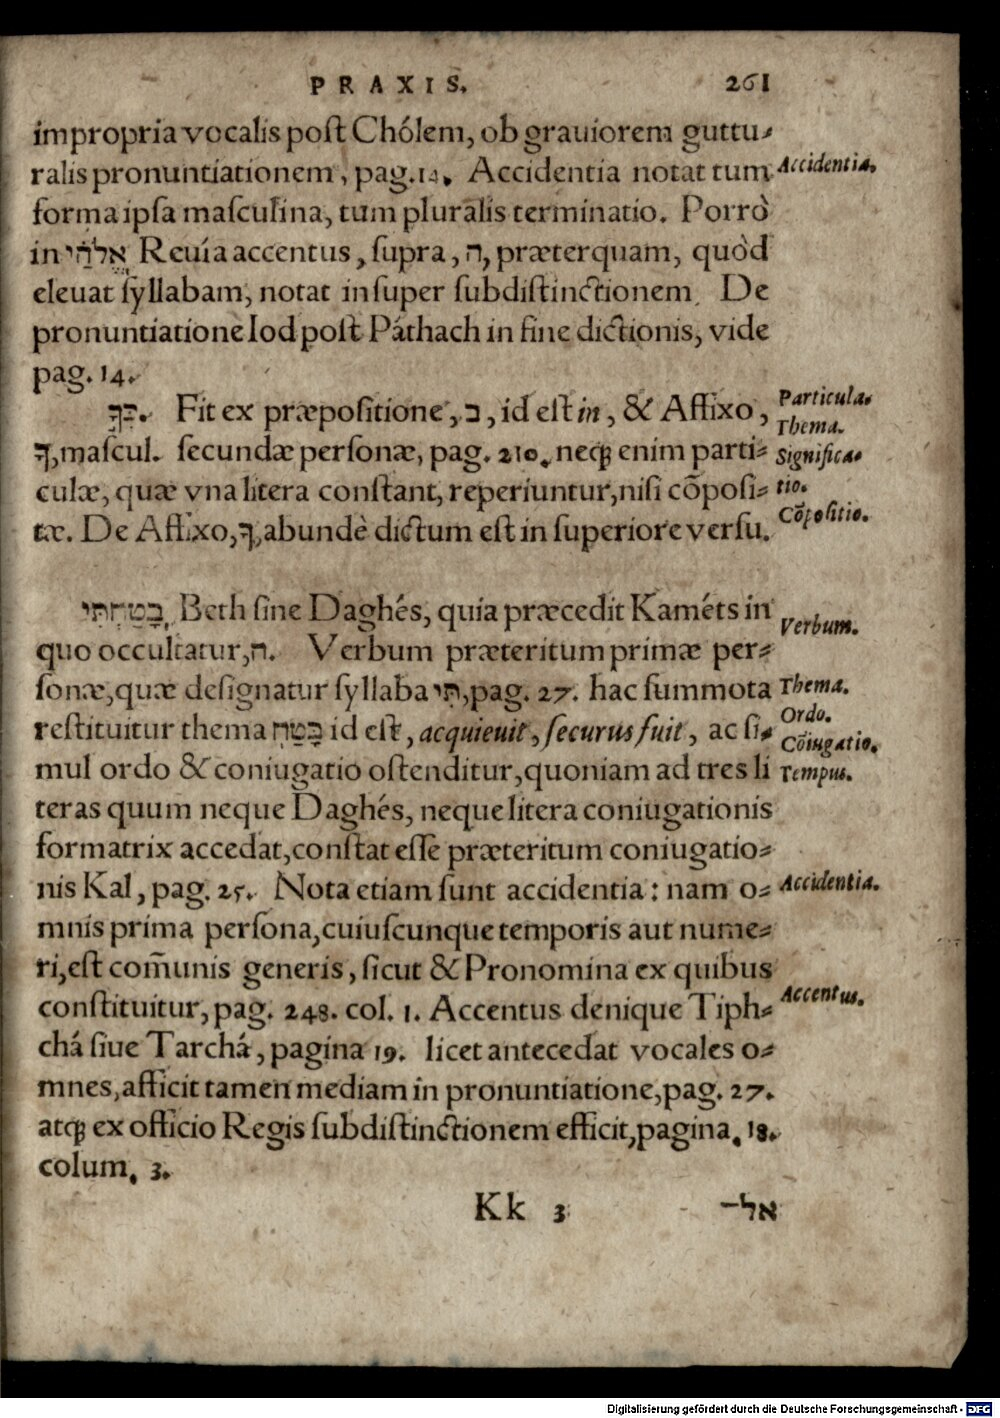 PRAXIS. 261
impropria vocalis poſt Chólem, ob grauiorem guttu-
ralis pronuntiationem, pag.14. Accidentia notat tum
Accidentia.
forma ipſa maſculina, tum pluralis terminatio. Porrò
in אֱלֹהַי Reuía accentus, ſupra, ה, præterquam, quòd
eleuat ſyllabam, notat inſuper ſubdiſtinctionem. De
pronuntiatione Iod poſt Páthach in fine dictionis, vide
pag. 14.
בְּךָ. Fit ex præpoſitione, ב, id eſt in, & Affixo,
Particula.
Thema.
ךָ, maſcul. ſecundæ perſonæ, pag. 210. neqꝫ enim parti-
Significa-
culæ, quæ vna litera conſtant, reperiuntur, niſi cõpoſi-
tio.
tæ. De Affixo, ךָ, abundè dictum eſt in ſuperiore verſu.
Cõpoſitio.
בָטַחְתִּי Beth ſine Daghés, quia præcedit Kaméts in
Verbum.
quo occultatur, ה. Verbum præteritum primæ per-
ſonæ, quæ deſignatur ſyllaba תִּי, pag. 27. hac ſummota
Thema.
reſtituitur thema בָּטַח id eſt, acquieuit, ſecurus fuit, ac ſi-
Ordo.
Cõiugatio.
mul ordo & coniugatio oſtenditur, quoniam ad tres li
Tempus.
teras quum neque Daghés, neque litera coniugationis
formatrix accedat, conſtat eſſe præteritum coniugatio-
nis Kal, pag. 25. Nota etiam ſunt accidentia: nam o-
Accidentia.
mnis prima perſona, cuiuſcunque temporis aut nume-
ri, eſt com̃unis generis, ſicut & Pronomina ex quibus
conſtituitur, pag. 248. col. 1. Accentus denique Tiph-
Accentus.
chá ſiue Tarchá, pagina 19. licet antecedat vocales o-
mnes, afficit tamen mediam in pronuntiatione, pag. 27.
atqꝫ ex officio Regis ſubdiſtinctionem efficit, pagina. 18.
colum. 3.
Kk 3 אל־
Digitalisierung gefördert durch die Deutsche Forschungsgemeinschaft - DFG